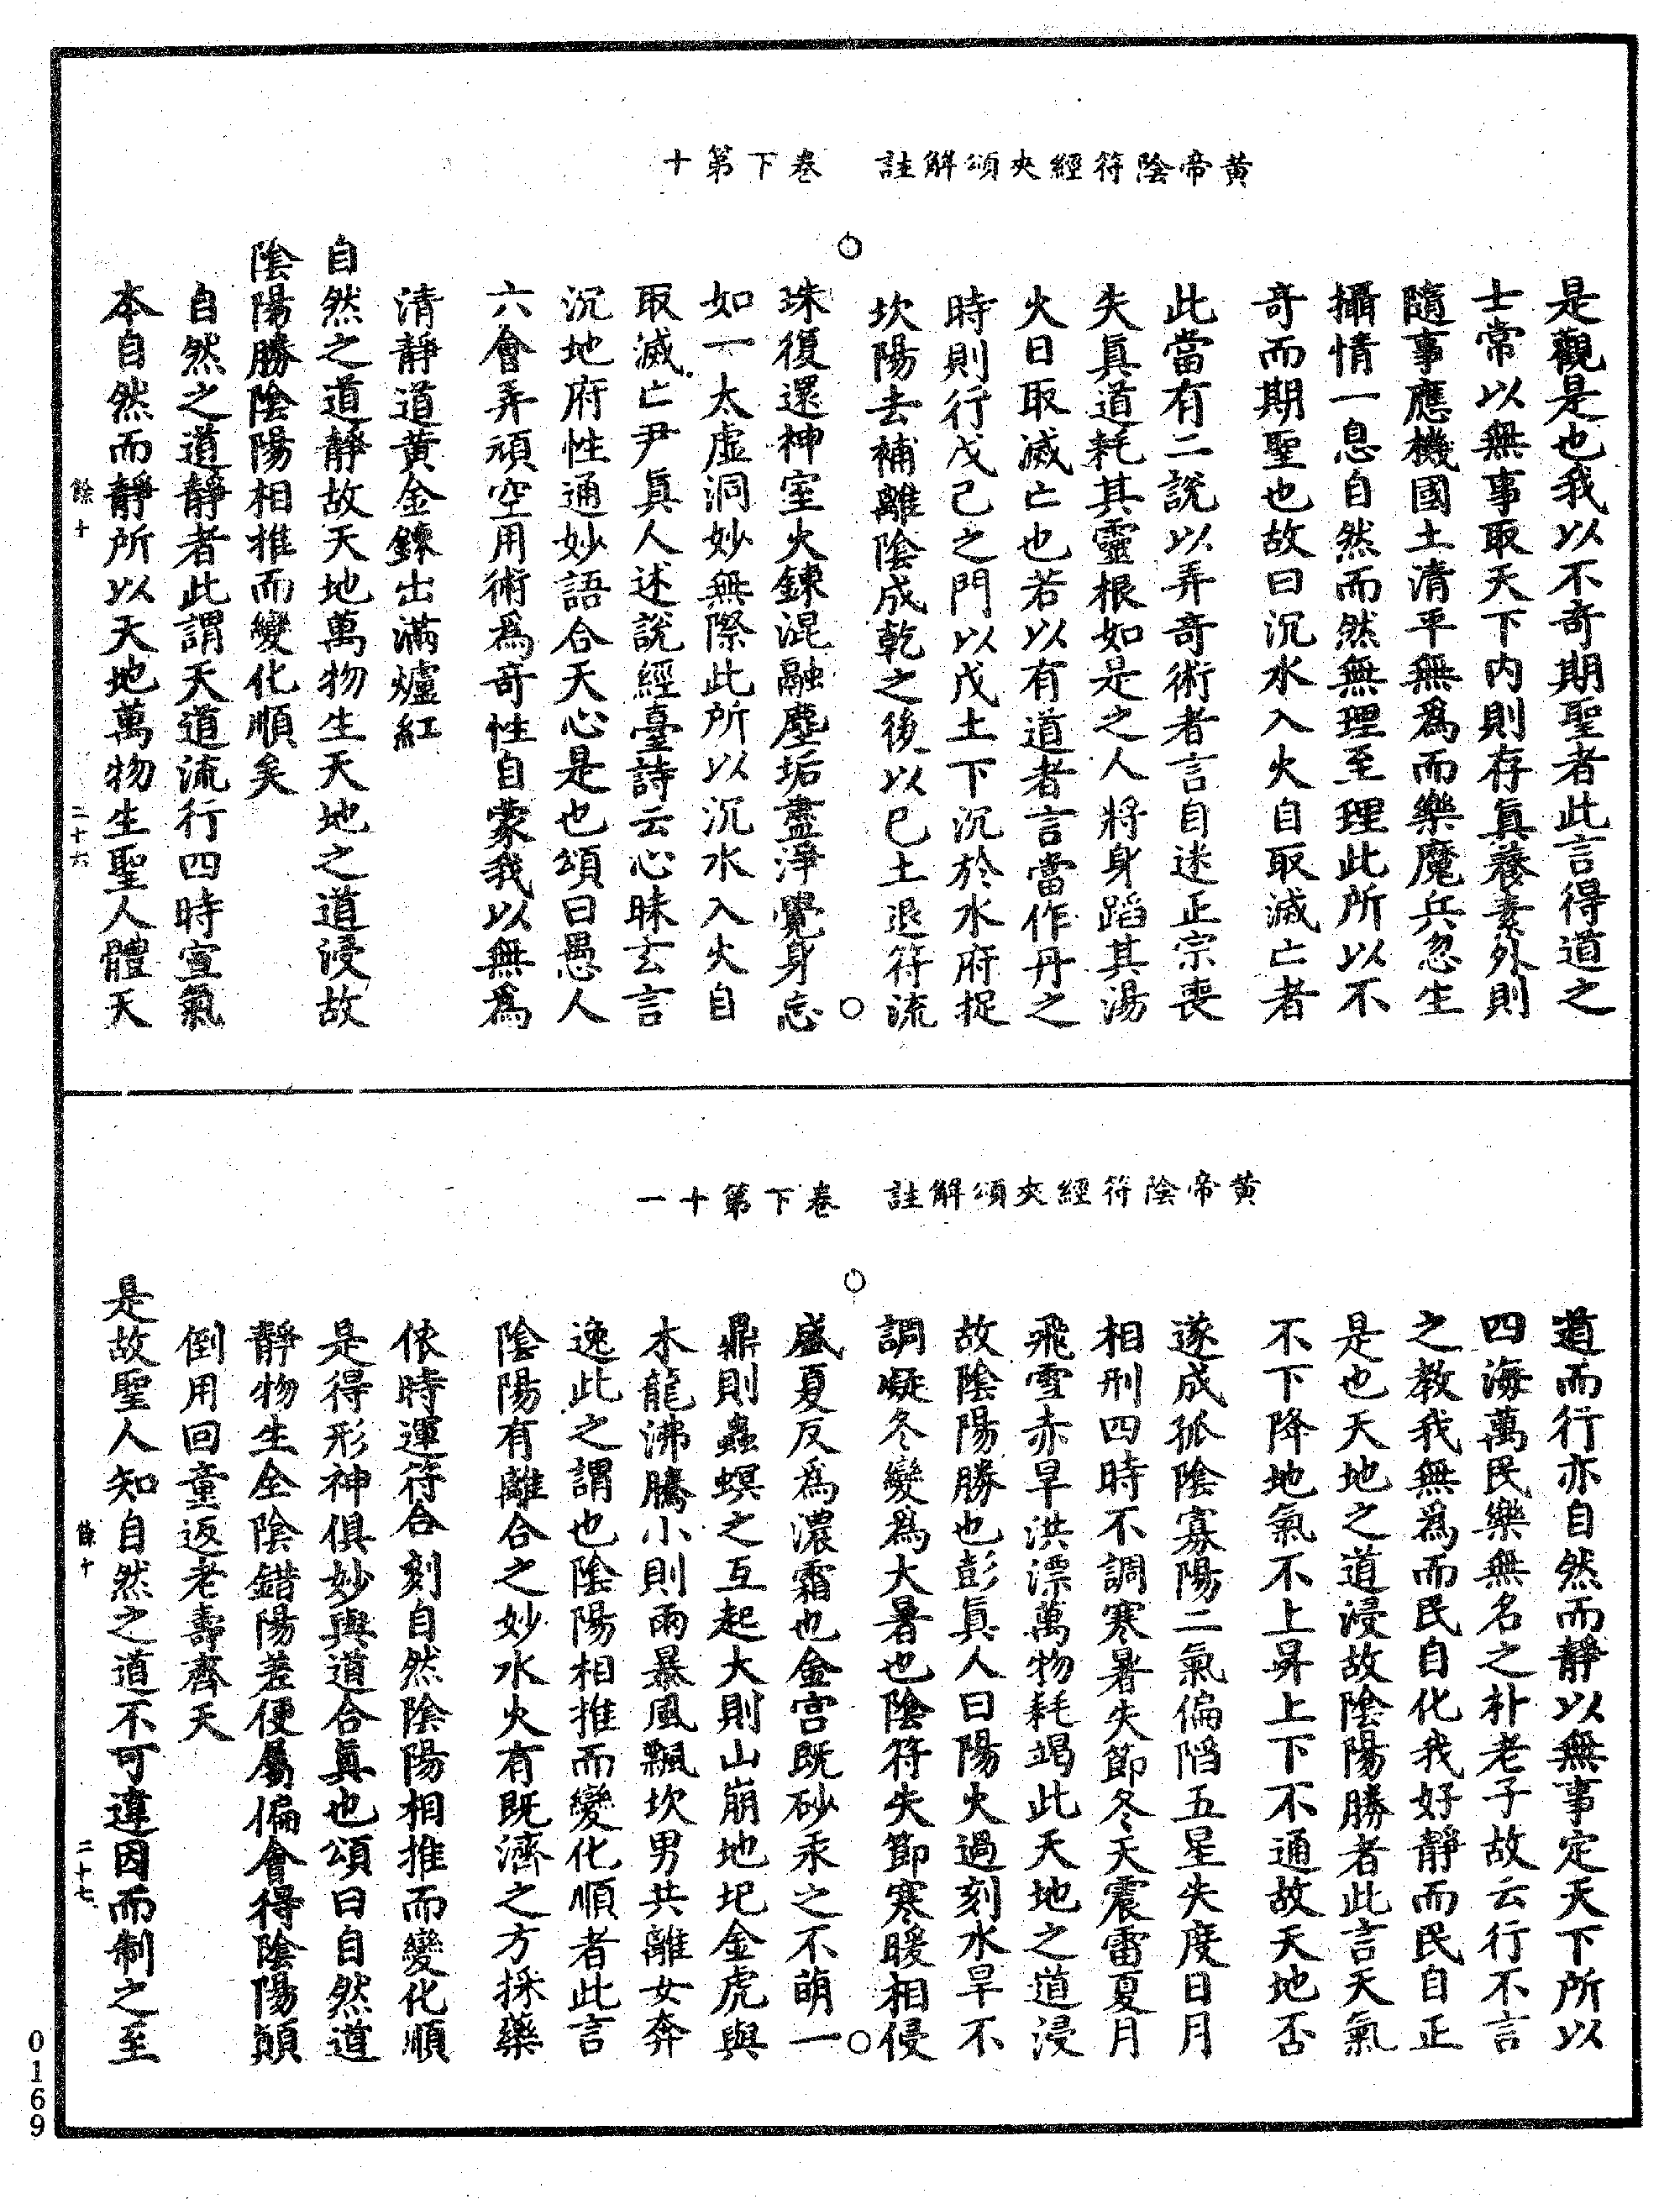 黃帝陰符經夾頌解註　卷下第十
是觀是也我以不奇期聖者此言得道之
士常以無事取天下內則存眞養素外則
隨事應機國土清平無為而樂魔兵忽生
攝情一息自然而然無理至理此所以不
奇而期聖也故曰沉水入火自取滅亡者
此當有二說以弄奇術者言自迷正宗喪
失眞道耗其靈根如是之人將身蹈其湯
火日取滅亡也若以有道者言當作丹之
時則行戊己之門以戊土下沉於水府捉
坎陽去補離陰成乾之後以巳土退符流
珠復還神室火鍊混融塵垢盡淨覺身忘
如一太虛洞妙無際此所以沉水入火自
取滅亡尹眞人述說經臺詩云心昧玄言
沉地府性通妙語合天心是也頌曰愚人
六會弄頑空用術為奇性自蒙我以無為
清靜道黃金鍊出滿爐紅
自然之道靜故天地萬物生天地之道浸故
陰陽勝陰陽相推而變化順矣
自然之道靜者此謂天道流行四時宣氣
本自然而靜所以天地萬物生聖人體天
餘十　二十六
黃帝陰符經夾頌解註　卷下第十一
道而行亦自然而靜以無事定天下所以
四海萬民樂無名之朴老子故云行不言
之教我無為而民自化我好靜而民自正
是也天地之道浸故陰陽勝者此言天氣
不下降地氣不上昇上下不通故天地否
遂成孤陰寡陽二氣偏陷五星失度日月
相刑四時不調寒暑失節冬天震雷夏月
飛雪赤旱洪漂萬物耗竭此天地之道浸
故陰陽勝也彭眞人曰陽火過刻水旱不
調凝冬變為大暑也陰符失節寒暖相侵
盛夏反為濃霜也金宮既砂汞之不萌一
鼎則蟲螟之互起大則山崩地圮金虎與
木龍沸騰小則雨暴風飄坎男共離女奔
逸此之謂也陰陽相推而變化順者此言
陰陽有離合之妙水火有既濟之方採藥
依時運符合刻自然陰陽相推而變化順
是得形神俱妙與道合眞也頌曰自然道
靜物生全陰錯陽差便屬偏會得陰陽顛
倒用回童返老壽齊天
是故聖人知自然之道不可違因而制之至
餘十　二十七
0169